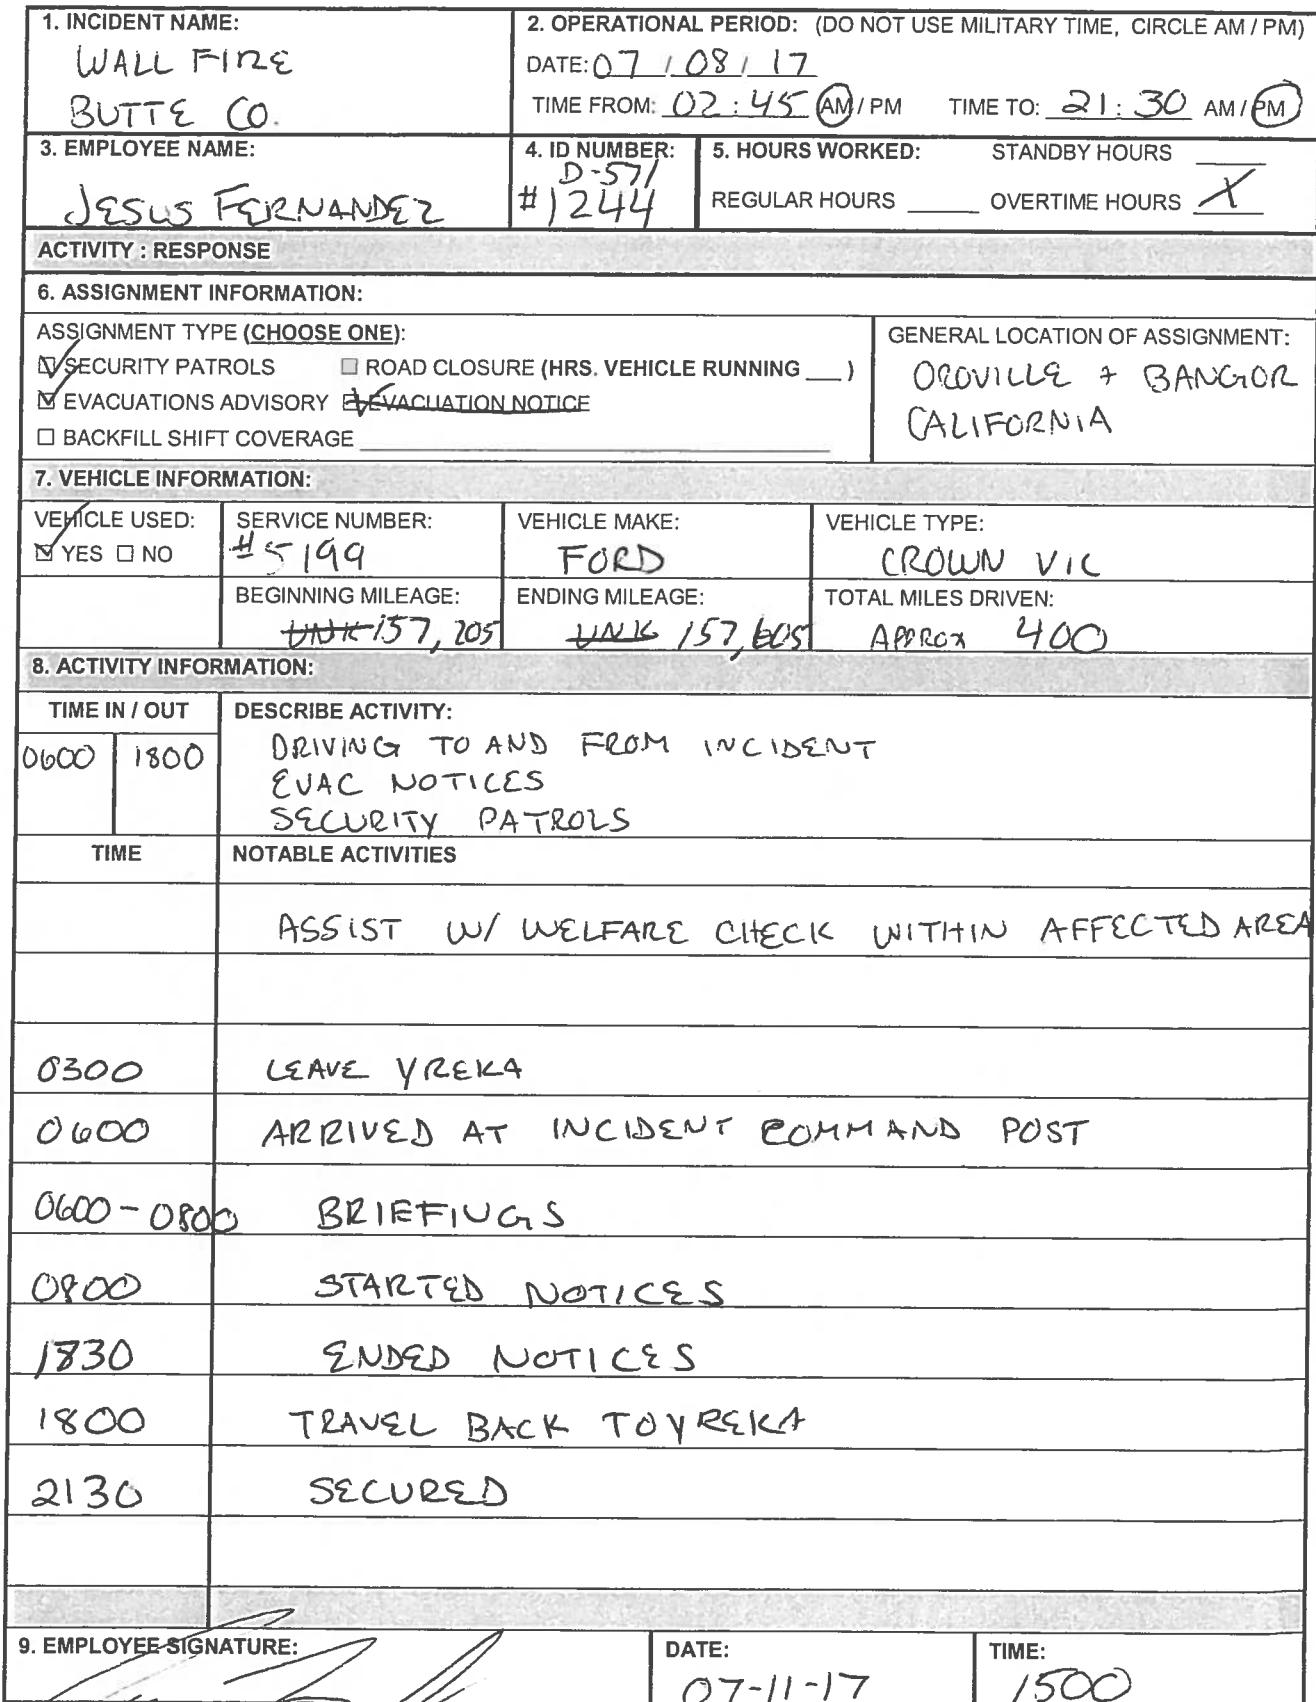 1. INCIDENT NAME:
WALL FIRE
BUTTE CO.
2. OPERATIONAL PERIOD: (DO NOT USE MILITARY TIME, CIRCLE AM / PM)
DATE: 07 / 08 / 17
TIME FROM: 02:45 AM / PM TIME TO: 21:30 AM / PM
3. EMPLOYEE NAME:
JESUS FERNANDEZ
4. ID NUMBER:
D-571
#1244
5. HOURS WORKED: STANDBY HOURS ____
REGULAR HOURS ____ OVERTIME HOURS X
ACTIVITY : RESPONSE
6. ASSIGNMENT INFORMATION:
ASSIGNMENT TYPE (CHOOSE ONE):
☑ SECURITY PATROLS ☐ ROAD CLOSURE (HRS. VEHICLE RUNNING ___ )
☑ EVACUATIONS ADVISORY ☑ EVACUATION NOTICE
☐ BACKFILL SHIFT COVERAGE
GENERAL LOCATION OF ASSIGNMENT:
OROVILLE + BANGOR
CALIFORNIA
7. VEHICLE INFORMATION:
VEHICLE USED:
☑ YES ☐ NO
SERVICE NUMBER:
#5199
VEHICLE MAKE:
FORD
VEHICLE TYPE:
CROWN VIC
BEGINNING MILEAGE:
UNK 157,205
ENDING MILEAGE:
UNK 157,605
TOTAL MILES DRIVEN:
APPROX 400
8. ACTIVITY INFORMATION:
TIME IN / OUT
0600 1800
DESCRIBE ACTIVITY:
DRIVING TO AND FROM INCIDENT
EVAC NOTICES
SECURITY PATROLS
TIME NOTABLE ACTIVITIES
ASSIST W/ WELFARE CHECK WITHIN AFFECTED AREA
0300 LEAVE YREKA
0600 ARRIVED AT INCIDENT COMMAND POST
0600-0800 BRIEFINGS
0800 STARTED NOTICES
1730 ENDED NOTICES
1800 TRAVEL BACK TO YREKA
2130 SECURED
9. EMPLOYEE SIGNATURE:
DATE:
07-11-17
TIME:
1500